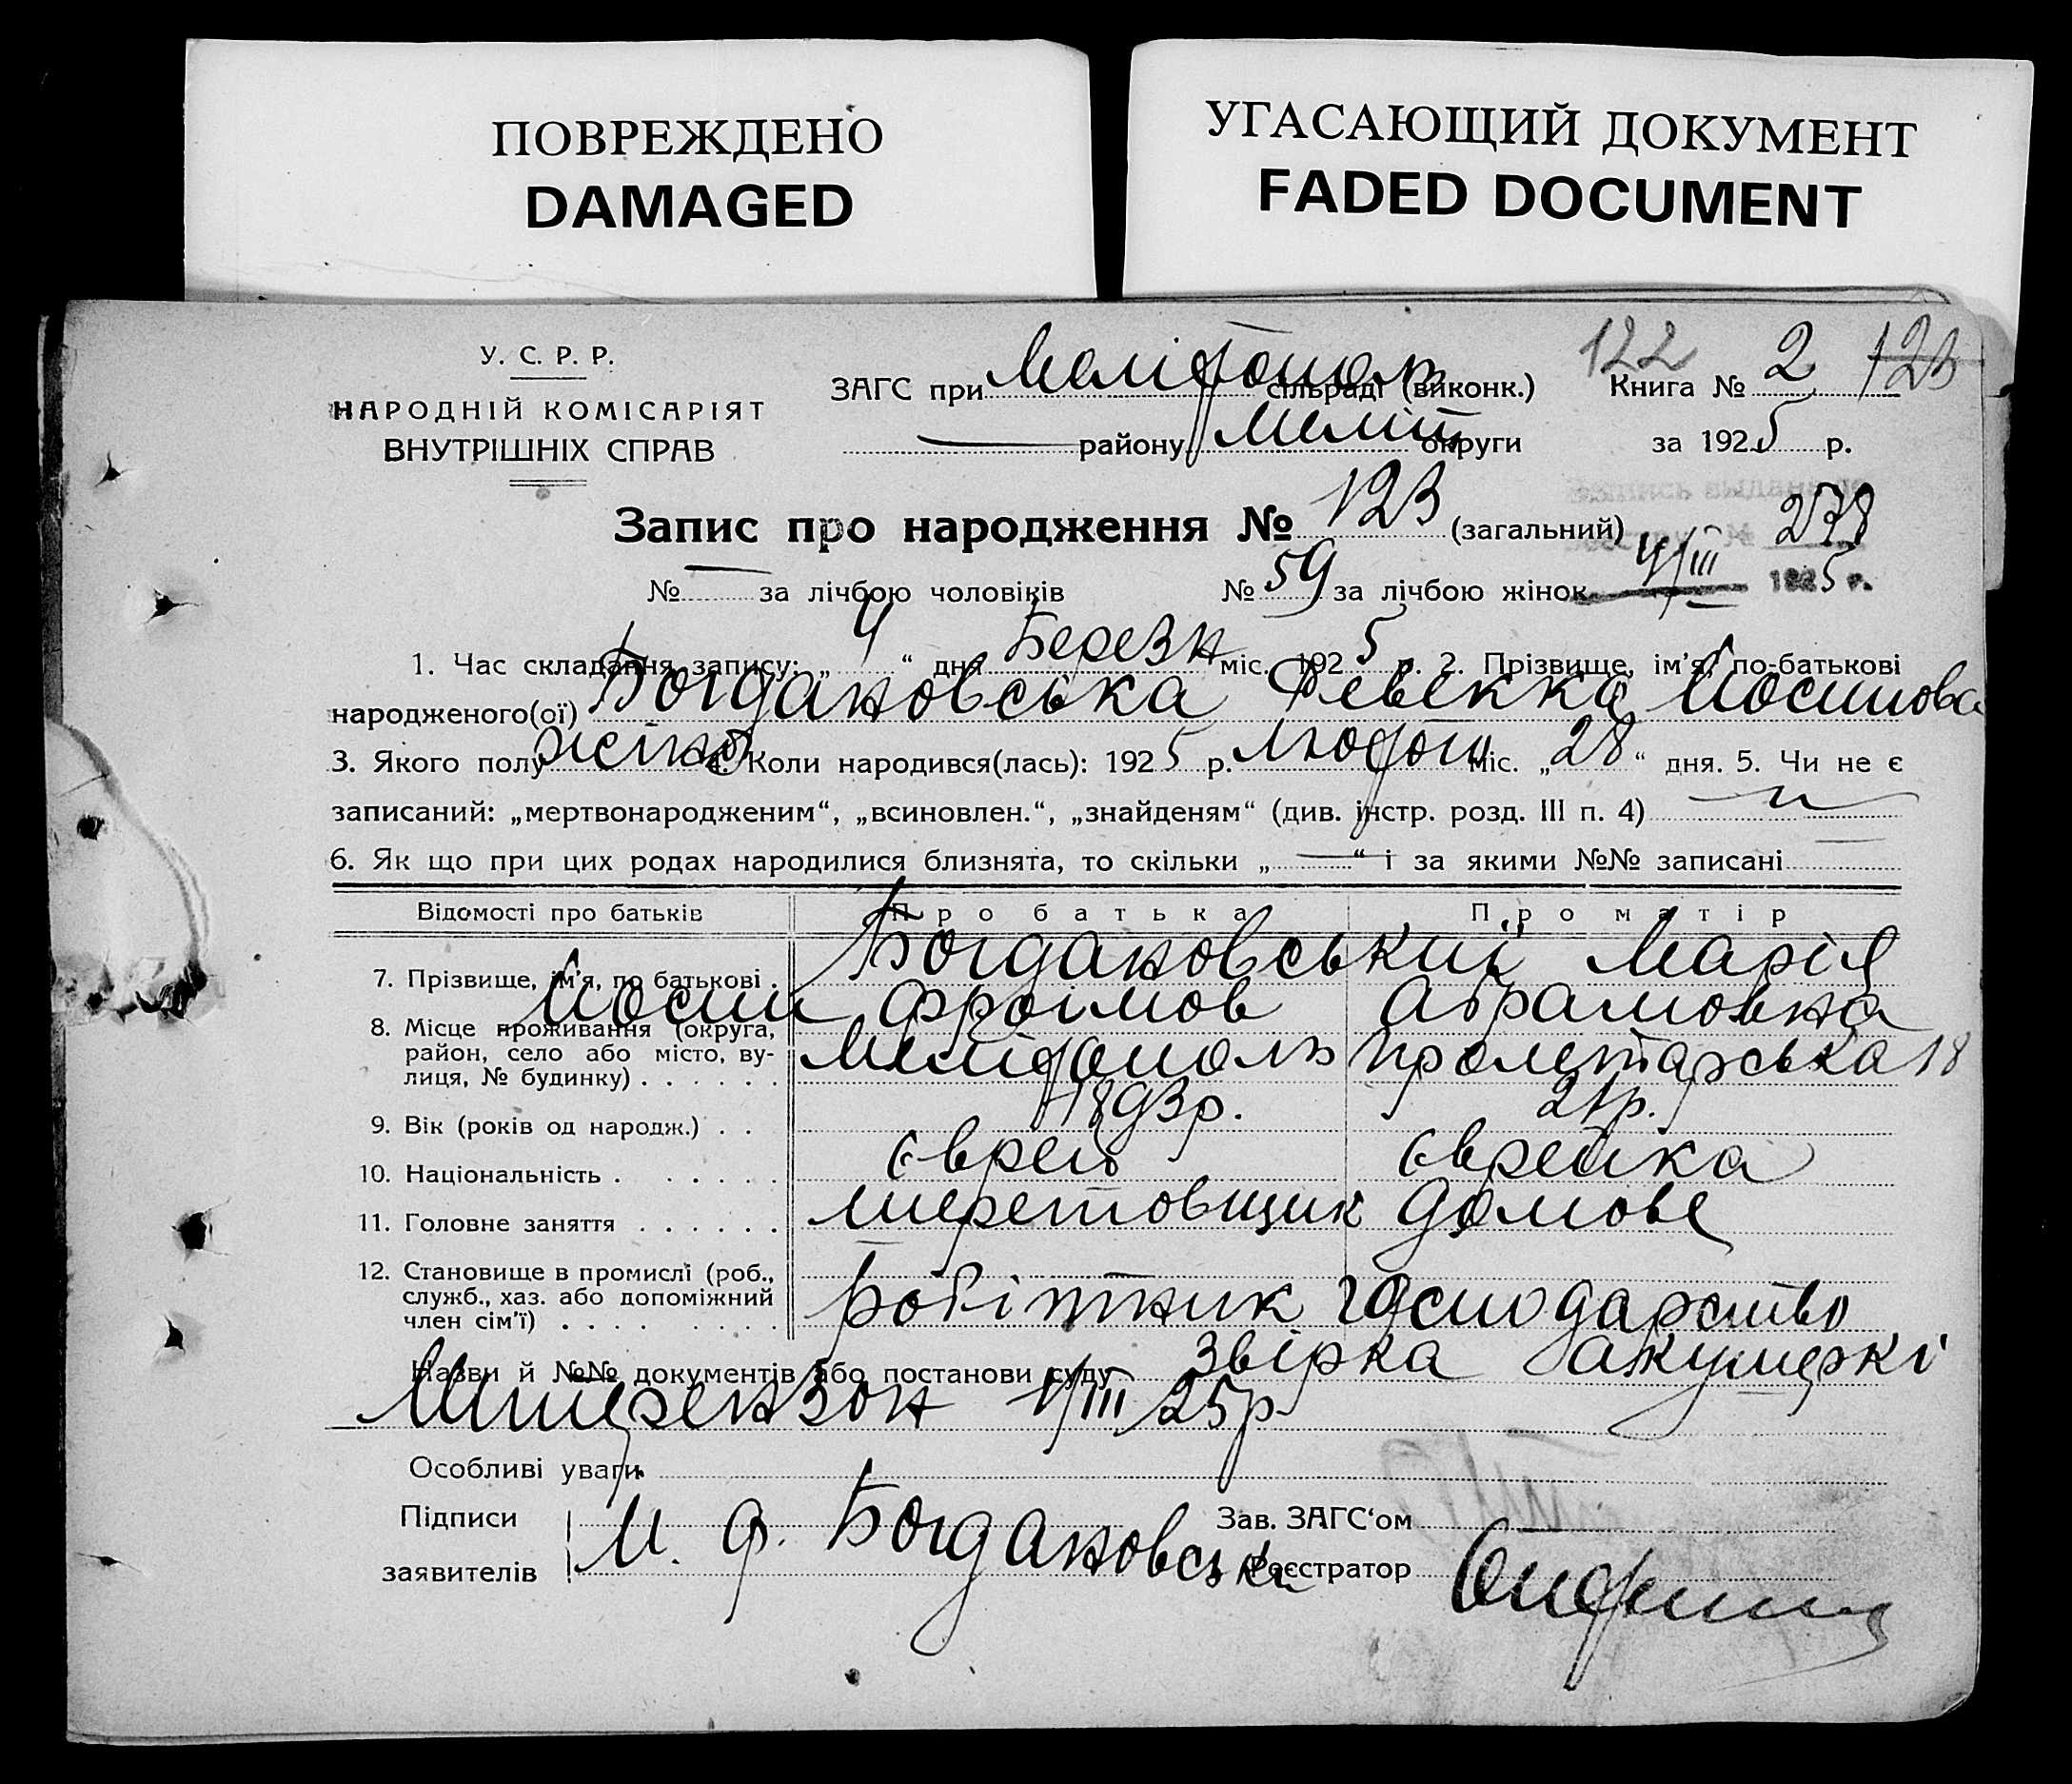 ПОВРЕЖДЕНО
DAMAGED
УГАСАЮЩИЙ ДОКУМЕНТ
FADED DOCUMENT
У. С. Р. Р.
НАРОДНІЙ КОМІСАРІЯТ
ВНУТРІШНІХ СПРАВ
ЗАГС при Меліtополь сільраді (виконк.)
122 Книга № 2 123
району Меліт округи за 1925 р.
Запис про народження № 123 (загальний) 278
№ — за лічбою чоловіків № 59 за лічбою жінок 4/III 1925 р.
1. Час складання запису: „ 4 “ дня Березн міс. 1925 р. 2. Прізвище, ім'я, по-батькові
народженого(ої) Богдановська Ревекка Йосипова
3. Якого полу жіноч 4. Коли народився(лась): 1925 р. лютого міс. „ 28 “ дня. 5. Чи не є
записаний: „мертвонародженим“, „всиновлен.“, „знайденям“ (див. інстр. розд. III п. 4)
6. Як що при цих родах народилися близнята, то скільки „ — “ і за якими №№ записані
Відомості про батьків Про батька Про матір
7. Прізвище, ім'я, по батькові . Богдановський Марія
Йосип Фроімов Абрамовна
8. Місце проживання (округа, район, село або місто, вулиця, № будинку) . . . . . . Меліtополь Пролетарська 18
9. Вік (років од народж.) . . 1893р. 21р.
10. Національність . . . . . . Єврей Єврейка
11. Головне заняття . . . . . . шеретовщик домове
12. Становище в промислі (роб., служб., хаз. або допоміжний член сім'ї) . . . . . . . . робітник господарство
Назви й №№ документів або постанови суду Звірка акушерки
1/III 25р
Особливі уваги
Підписи
заявителів
М. Ф. Богдановськи
Зав. ЗАГС'ом
Реєстратор